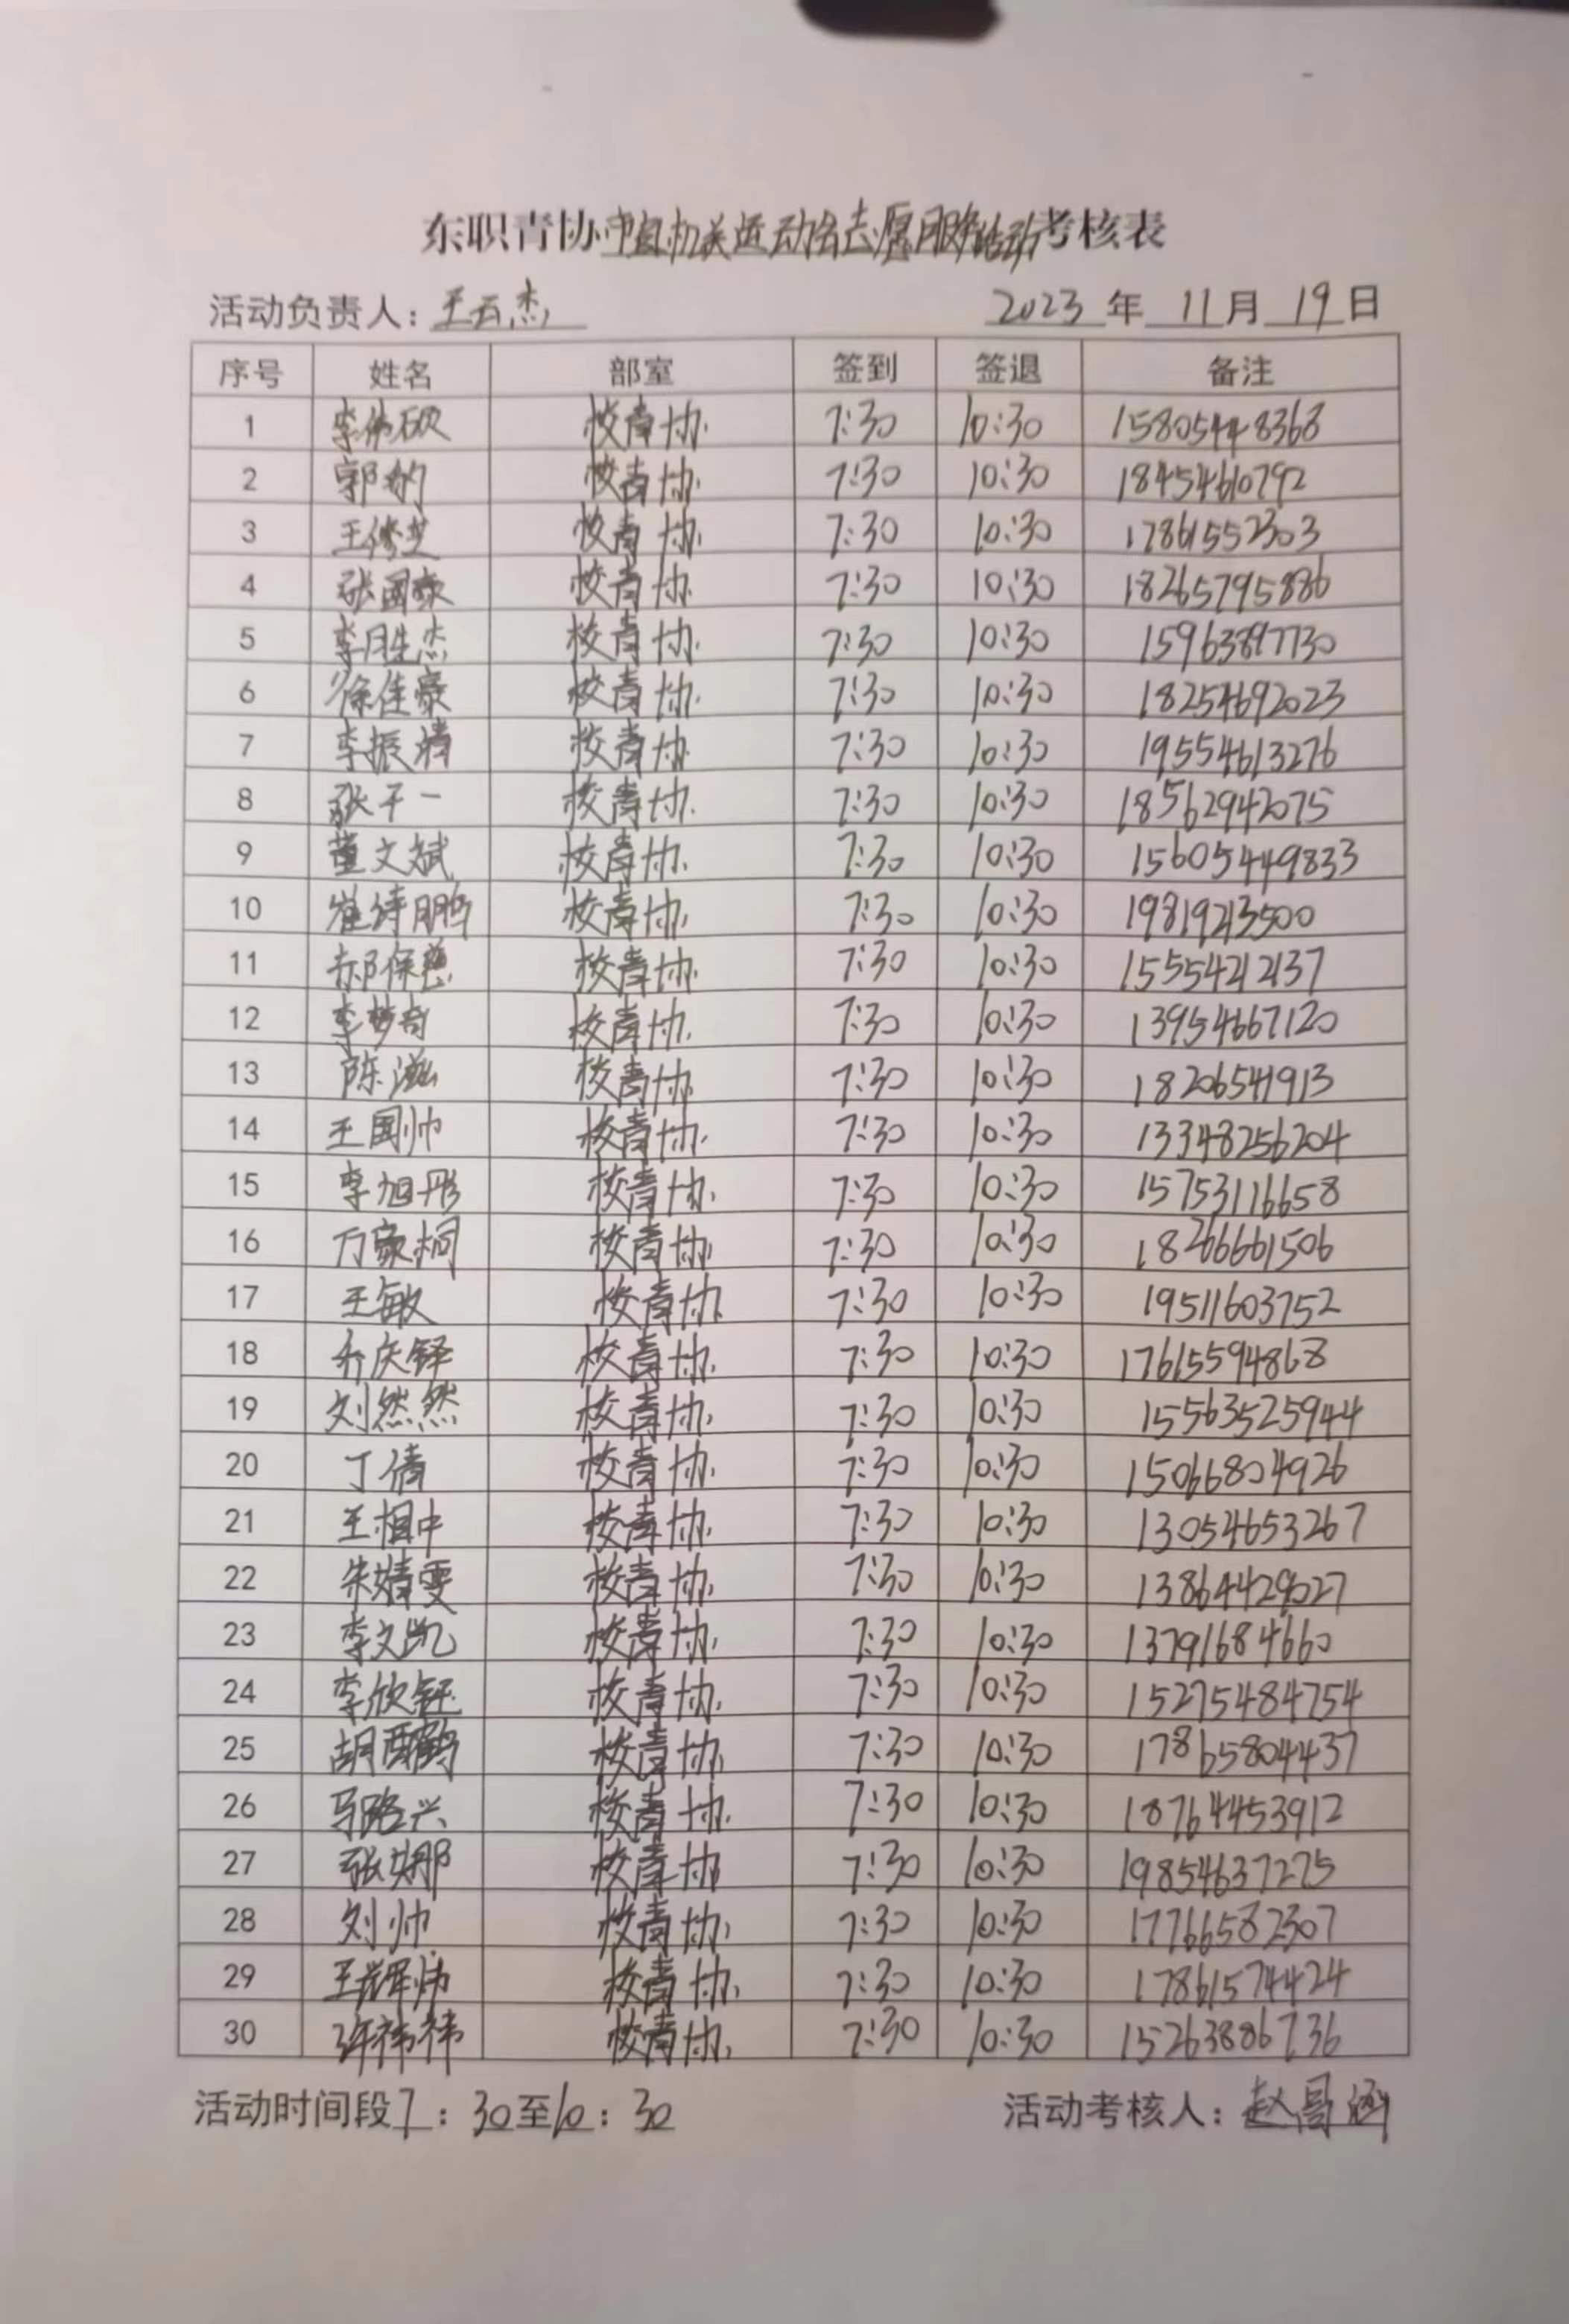 东职青协市直机关运动会志愿服务活动考核表
活动负责人：王云杰 2023年 11月 19日
序号 姓名 部室 签到 签退 备注
1 李伟硕 校青协 7:30 10:30 15805448368
2 郭 校青协 7:30 10:30 18454610792
3 王修芝 校青协 7:30 10:30 17861552303
4 张国豪 校青协 7:30 10:30 18265795886
5 李胜杰 校青协 7:30 10:30 15963897730
6 徐佳豪 校青协 7:30 10:30 18254692023
7 李振清 校青协 7:30 10:30 19554613276
8 张千一 校青协 7:30 10:30 18562942075
9 董文斌 校青协 7:30 10:30 15605449833
10 崔诗鹏 校青协 7:30 10:30 19819213500
11 郝保慧 校青协 7:30 10:30 15554212137
12 李梦奇 校青协 7:30 10:30 13954667120
13 陈滋 校青协 7:30 10:30 18206541913
14 王国帅 校青协 7:30 10:30 13348256204
15 李旭彤 校青协 7:30 10:30 15753116658
16 万家桐 校青协 7:30 10:30 18266661506
17 王敏 校青协 7:30 10:30 19511603752
18 乔庆铎 校青协 7:30 10:30 17615594868
19 刘然然 校青协 7:30 10:30 15563525944
20 丁倩 校青协 7:30 10:30 15066804926
21 王相中 校青协 7:30 10:30 13054653267
22 朱婧雯 校青协 7:30 10:30 13864429027
23 李文凯 校青协 7:30 10:30 13791684660
24 李欣钰 校青协 7:30 10:30 15275484754
25 胡 校青协 7:30 10:30 17865804437
26 马路兴 校青协 7:30 10:30 18764453912
27 张娜 校青协 7:30 10:30 19854637275
28 刘帅 校青协 7:30 10:30 17766582307
29 王辉炜 校青协 7:30 10:30 17861574424
30 许祎祎 校青协 7:30 10:30 15263886736
活动时间段7：30至10：30 活动考核人：赵昌涵